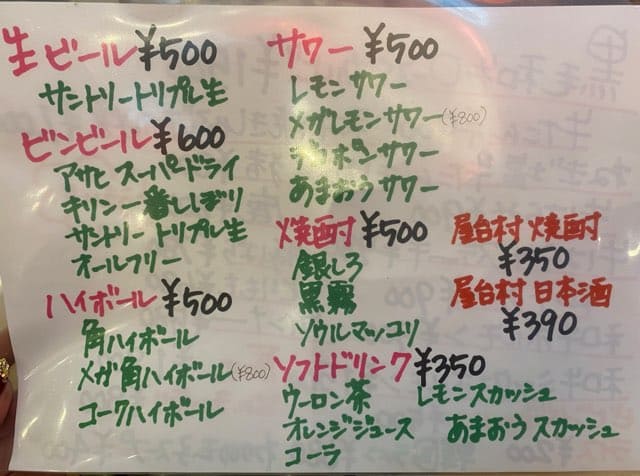 生ビール ¥500
サントリートリプル生
ビンビール ¥600
アサヒ スーパードライ
キリン一番しぼり
サントリー トリプル生
オールフリー
ハイボール ¥500
角ハイボール
メガ角ハイボール(¥800)
コークハイボール
サワー ¥500
レモンサワー
メガレモンサワー(¥800)
デコポンサワー
あまおうサワー
焼酎 ¥500
銀しろ
黒霧
ソウルマッコリ
屋台村 焼酎
¥350
屋台村 日本酒
¥390
ソフトドリンク ¥350
ウーロン茶 レモンスカッシュ
オレンジジュース あまおうスカッシュ
コーラ